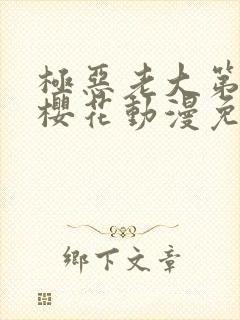 極惡老大第
櫻花動漫免
鄉下文章